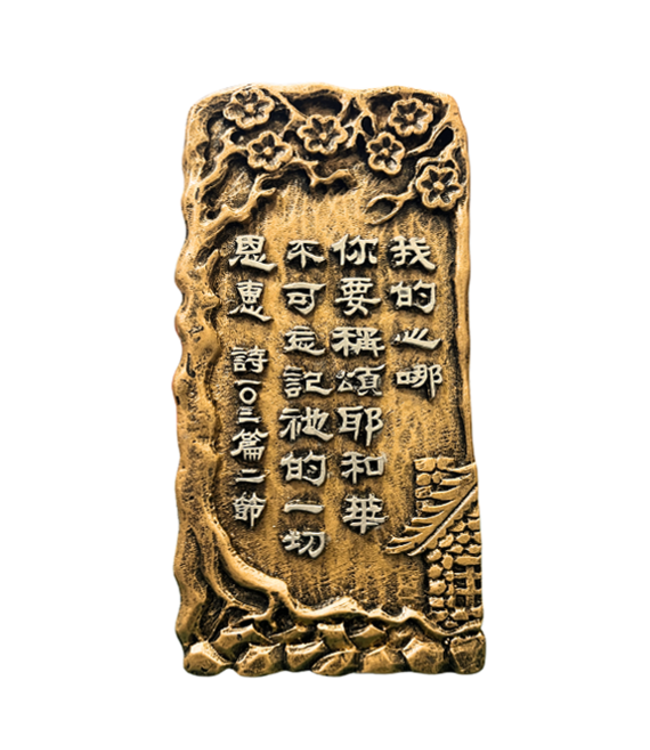 我的心哪
你要稱頌耶和華
不可忘記祂的一切
恩惠 詩一〇三篇二節